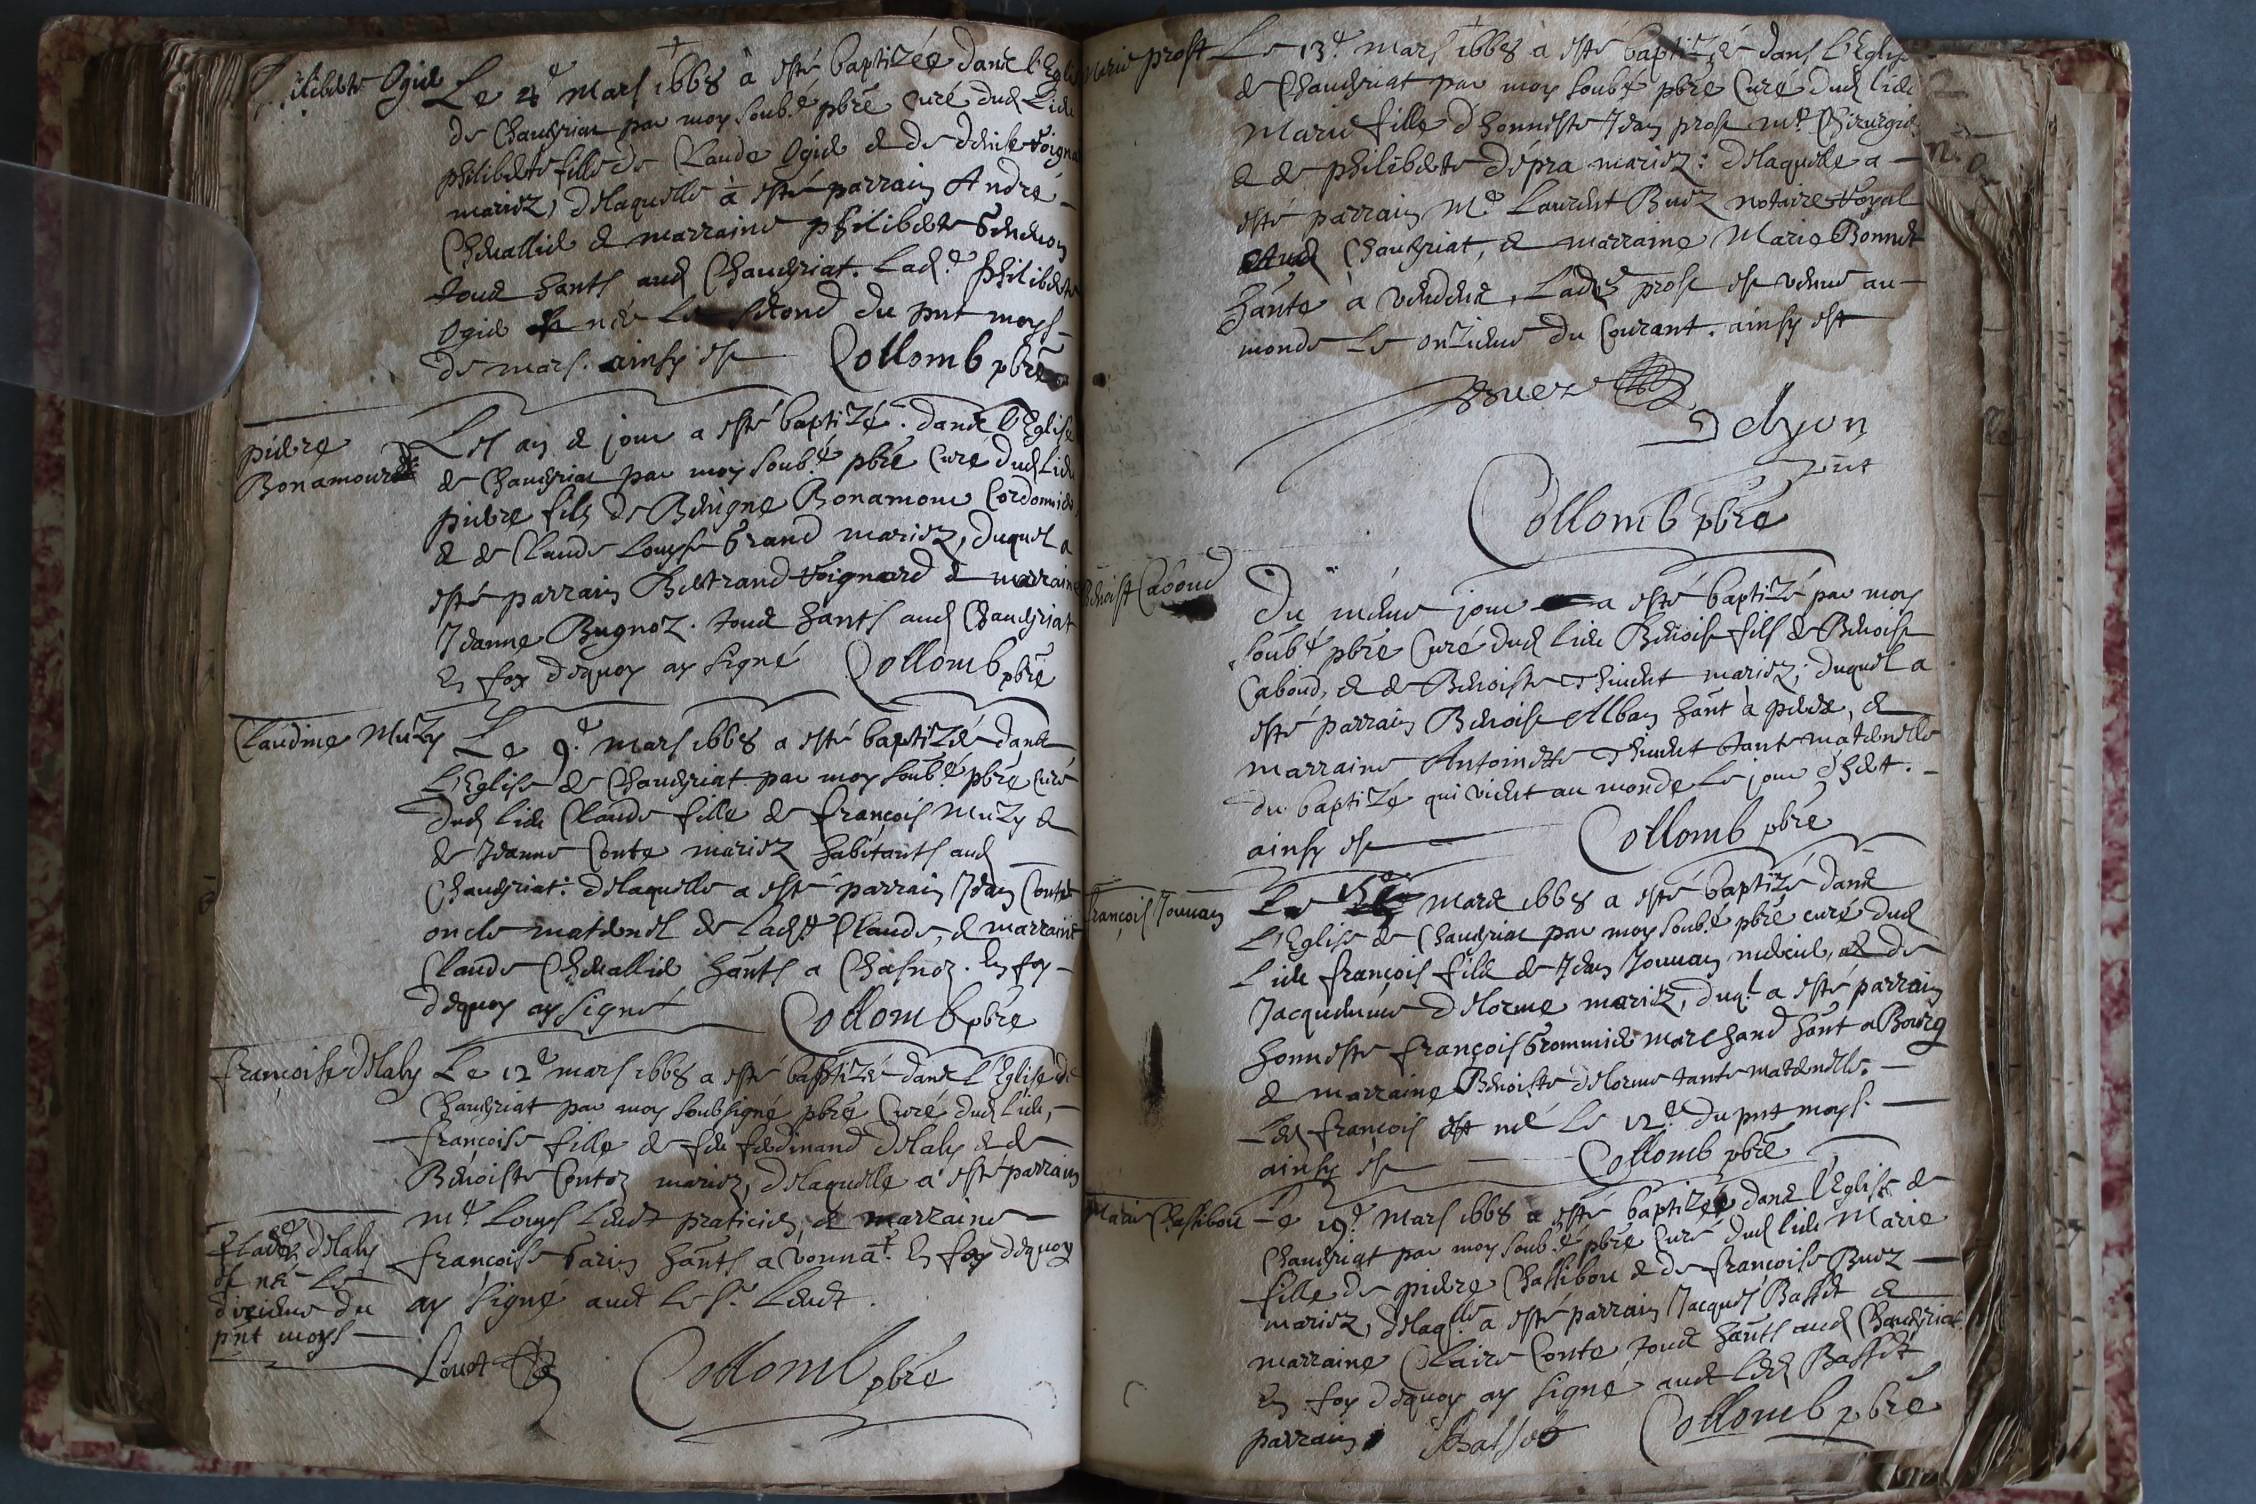 Philiberte Ogier
Le 4e mars 1668 à esté baptizée dans l'Eglise
de Chaveyriat par moy soubé pbrē curé dud lieu
philiberte fille de Claude Ogier & de denise
mariez, delaquelle à esté parrain André
Chevallier & marraine philiberte
tous hants aud Chaveyriat. Lade philiberte
Ogier est née le second du pnt moys
de mars. ainsy est Collomb pbrē
pierre
Bonamour
Les an & jour a esté baptizé dans l'Eglise
de Chaveyriat par moy soubé pbrē curé dud lieu
pierre filz de Benigne Bonamour Cordonnier
& de Claude Louyse Grand mariez, duquel a
esté parrain Bertrand Voignard & marraine
Jeanne Bugnoz. tous hants aud Chaveyriat
En foy dequoy ay signé Collomb pbrē
Claudine Muzy
Le 9e mars 1668 a esté baptizée dans
L'Eglise de Chaveyriat par moy soubé pbrē curé
dud lieu Claude fille de françois Muzy &
de Jeanne Conte mariez habitants aud
Chaveyriat: delaquelle a esté parrain Jean Conte
oncle maternel de lade Claude, & marraine
Claude Chevallier hants a Chasnoz. En foy
dequoy ay signé Collomb pbrē
françoise delaly
Le 12e mars 1668 a esté baptizée dans l'Eglise de
Chaveyriat par moy soubsigné pbrē Curé dud lieu,
françoise fille de feu ferdinand Delaly & de
Benoiste Conton mariez, delaquelle a esté parrain
Me Louys Levet praticien & marraine
françoise Garin hants a vonnat. En foy dequoy
ay signé avec le Sr Levet.
delaly
est née le
dixieme du
pnt moys
Levet
Collomb pbrē
Marie prost
Le 13e mars 1668 à esté baptizée dans l'Eglise
de Chaveyriat par moy soubé pbrē Curé dud lieu
Marie fille d'honneste Jean prost me Chirurgien
& de philiberte dépra mariez: delaquelle a
esté parrain Me Laurent Buez notaire Royal
aud Chaveyriat, & marraine Marie Bonnet
hante à vendeux, Lade prost est venue au
monde le onzieme du Courant. ainsy est
Buez
Collomb pbrē
Benoist Caboud
Du même jour a esté baptizé par moy
soubé pbrē Curé dud lieu Benoist fils de Benoist
Caboud, & de Benoiste Thevenet mariez; duquel a
esté parrain Benoist Alban hant à & 
marraine Antoinette Thevenet tante maternelle
du baptizé qui vient au monde le jour d'hier.
ainsy est Collomb pbrē
françois Jouvan
Le mars 1668 a esté baptizé dans
L'Eglise de Chaveyriat par moy soubé pbrē curé dud
Lieu françois filz de Jean Jouvan & de
Jacquemine Delorme mariez, duql a esté parrain
honneste françois Grommier marchand hant a Bourg
& marraine Benoiste delorme tante maternelle.
Led françois est né le 12e du pnt moys.
ainsy est Collomb pbrē
Marie Chassibou
Le 19e Mars 1668 a esté baptizée dans l'Eglise de
Chaveyriat par moy soubé pbrē Curé dud lieu Marie
fille de pierre Chassibou & de françoise Buez
mariez, delaqlle a esté parrain Jacques Basset &
marraine Claire Conte, tous hants aud Chaveyriat
En foy dequoy ay signé avec led Basset
parrain Basset Collomb pbrē